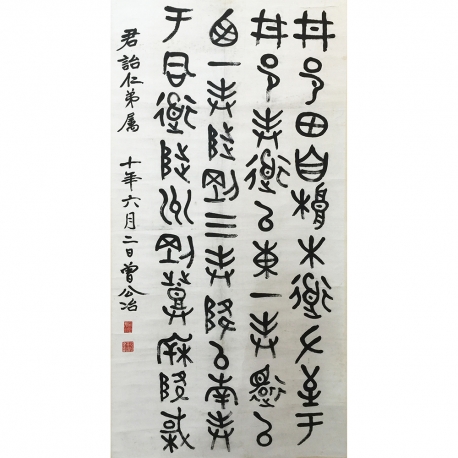 丼邑田自根木道左至于
丼邑封道以東一封還以
西一封陟剛三封降以南封
于同道陟州剛登𣏟降棫
君詒仁弟属 十年六月二日曾公冶